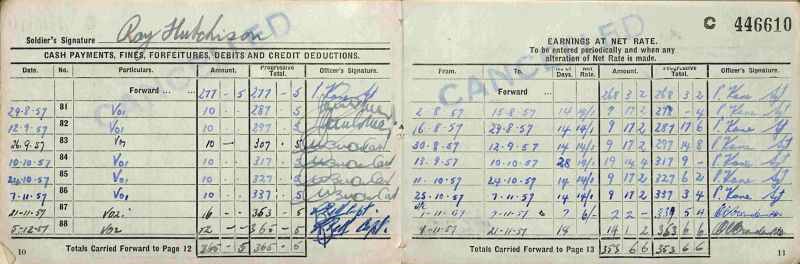 Soldier's Signature Ray Hutchison
CASH PAYMENTS, FINES, FORFEITURES, DEBITS AND CREDIT DEDUCTIONS.
Date. No. Particulars. Amount. Progressive Total. Officer's Signature.
Forward ... ... 277 - 5 277 - 5
29-8-57 81 Vo1 10 - - 287 - 5
12-9-57 82 Vo1 10 - - 297 - 5
26-9-57 83 10 - 307 - 5
10-10-57 84 Vo1 10 - - 317 - 5
24-10-57 85 Vo1 10 - - 327 - 5
7-11-57 86 Vo1 10 - - 337 - 5
21-11-57 87 Vo2 16 - - 353 - 5
5-12-57 88 Vo2 12 - - 365 - 5
10 Totals Carried Forward to Page 12 365 - 5 365 - 5
CANCELLED
C 446610
EARNINGS AT NET RATE.
To be entered periodically and when any
alteration of Net Rate is made.
From. To. No. of Days. Net Rate. Amount. Progressive Total. Officer's Signature
Forward 268 3 2 268 3 2 P. Kane Sgt
2-8-57 15-8-57 14 14/1 9 17 2 278 - 4 P. Kane Sgt
16-8-57 29-8-57 14 14/1 9 17 2 287 17 6 P. Kane Sgt
30-8-57 12-9-57 14 14/1 9 17 2 297 14 8 P. Kane Sgt
13-9-57 10-10-57 28 14/1 19 14 4 317 9 - P. Kane Sgt
11-10-57 24-10-57 14 14/1 9 17 2 327 6 2 P. Kane Sgt
25-10-57 7-11-57 14 14/1 9 17 2 337 3 4 P. Kane Sgt
1-11-57 7-11-57 7 6/- 2 2 - 339 5 4
21-11-57 14 14 1 2 353 6 6
Totals Carried Forward to Page 13 353 6 6 353 6 6
11
CANCELLED